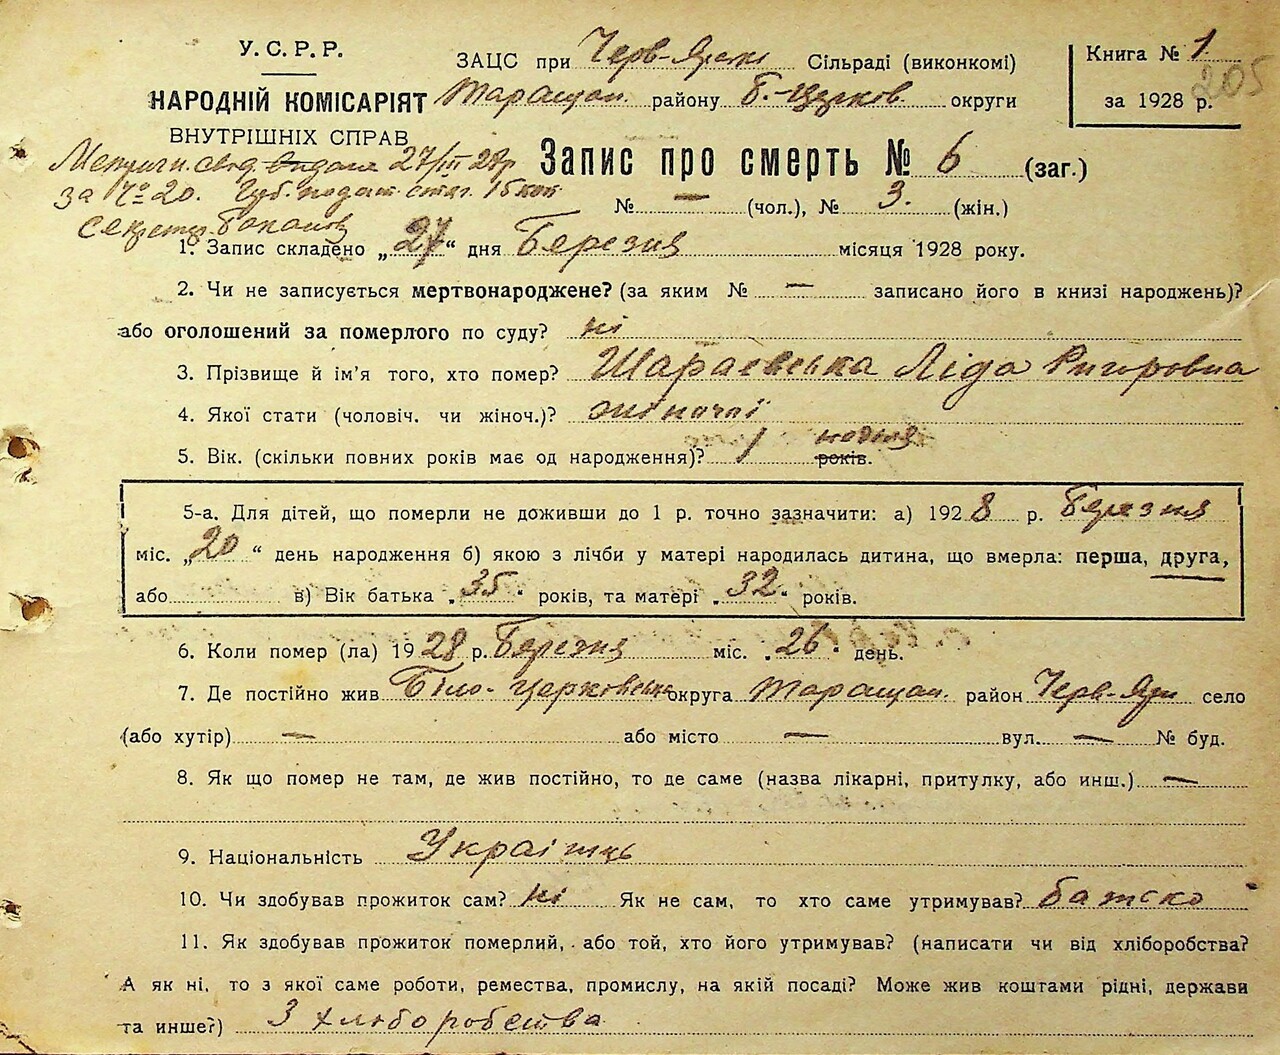 У. С. Р. Р.
НАРОДНІЙ КОМІСАРІЯТ
ВНУТРІШНІХ СПРАВ
ЗАЦС при Черв-Ярскі Сільраді (виконкомі)
Таращан. району Б.-Церков. округи
Книга № 1
205
за 1928 р.
27/III 28р
за № 20. 15 коп
секретар
Запис про смерть № 6 (заг.)
№ — (чол.), № 3. (жін.)
1. Запис складено „27“ дня Березня місяця 1928 року.
2. Чи не записується мертвонароджене? (за яким № — записано його в книзі народжень)?
або оголошений за померлого по суду? ні
3. Прізвище й ім'я того, хто помер? Шараевська Ліда Григоровна
4. Якої стати (чоловіч. чи жіноч.)? жіночої
5. Вік. (скільки повних років має од народження)? 1 неділя років.
5-а. Для дітей, що померли не доживши до 1 р. точно зазначити: а) 1928 р. Березня
міс. „20“ день народження б) якою з лічби у матері народилась дитина, що вмерла: перша, друга,
або в) Вік батька „35“ років, та матері „32“ років.
6. Коли помер (ла) 1928 р. Березня міс. „26“ день.
7. Де постійно жив Біло-Церковська округа Таращан. район Черв-Яри село
(або хутір) — або місто — вул. — № буд.
8. Як що помер не там, де жив постійно, то де саме (назва лікарні, притулку, або инш.) —
9. Національність Українць
10. Чи здобував прожиток сам? ні Як не сам, то хто саме утримував? батько
11. Як здобував прожиток померлий, або той, хто його утримував? (написати чи від хліборобства?
А як ні, то з якої саме роботи, ремества, промислу, на якій посаді? Може жив коштами рідні, держави
та инше?) З хлюборобства